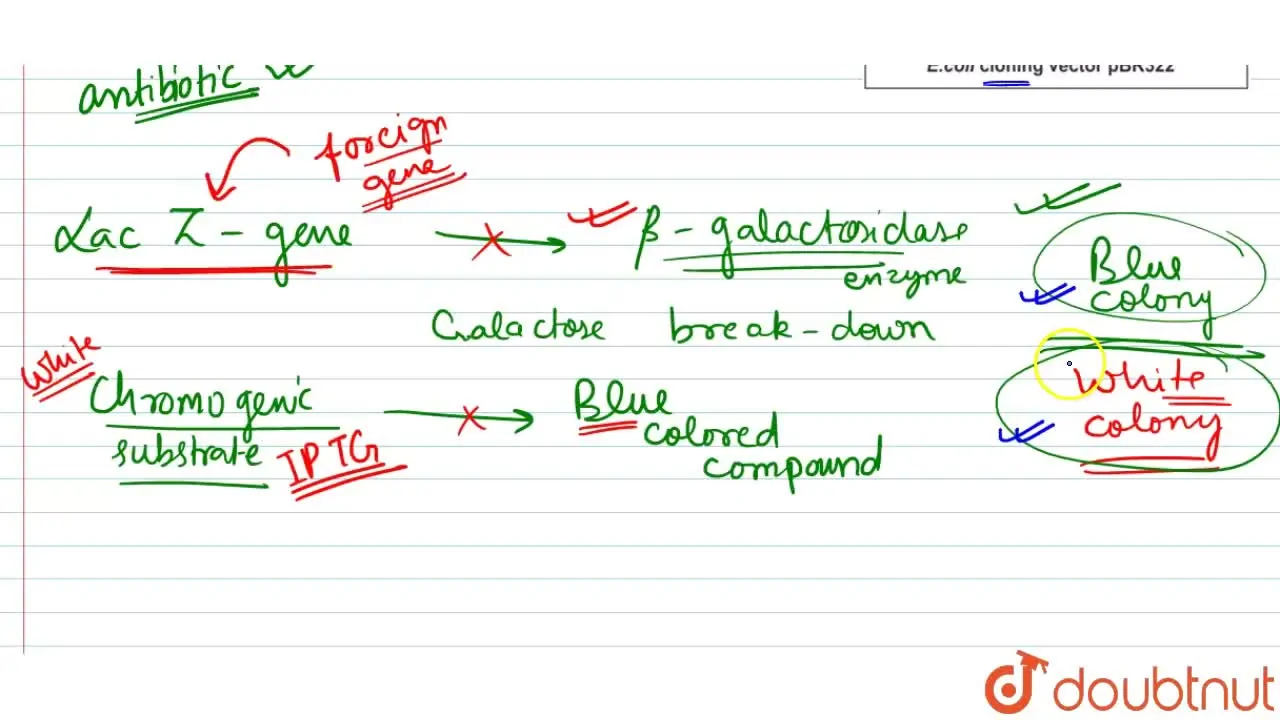 antibiotic
E.coli cloning vector pBR322
foreign
gene
Lac Z - gene
β - galactosidase
enzyme
Blue
colony
Galactose break - down
White
Chromogenic
substrate
IPTG
Blue
colored
compound
White
colony
doubtnut